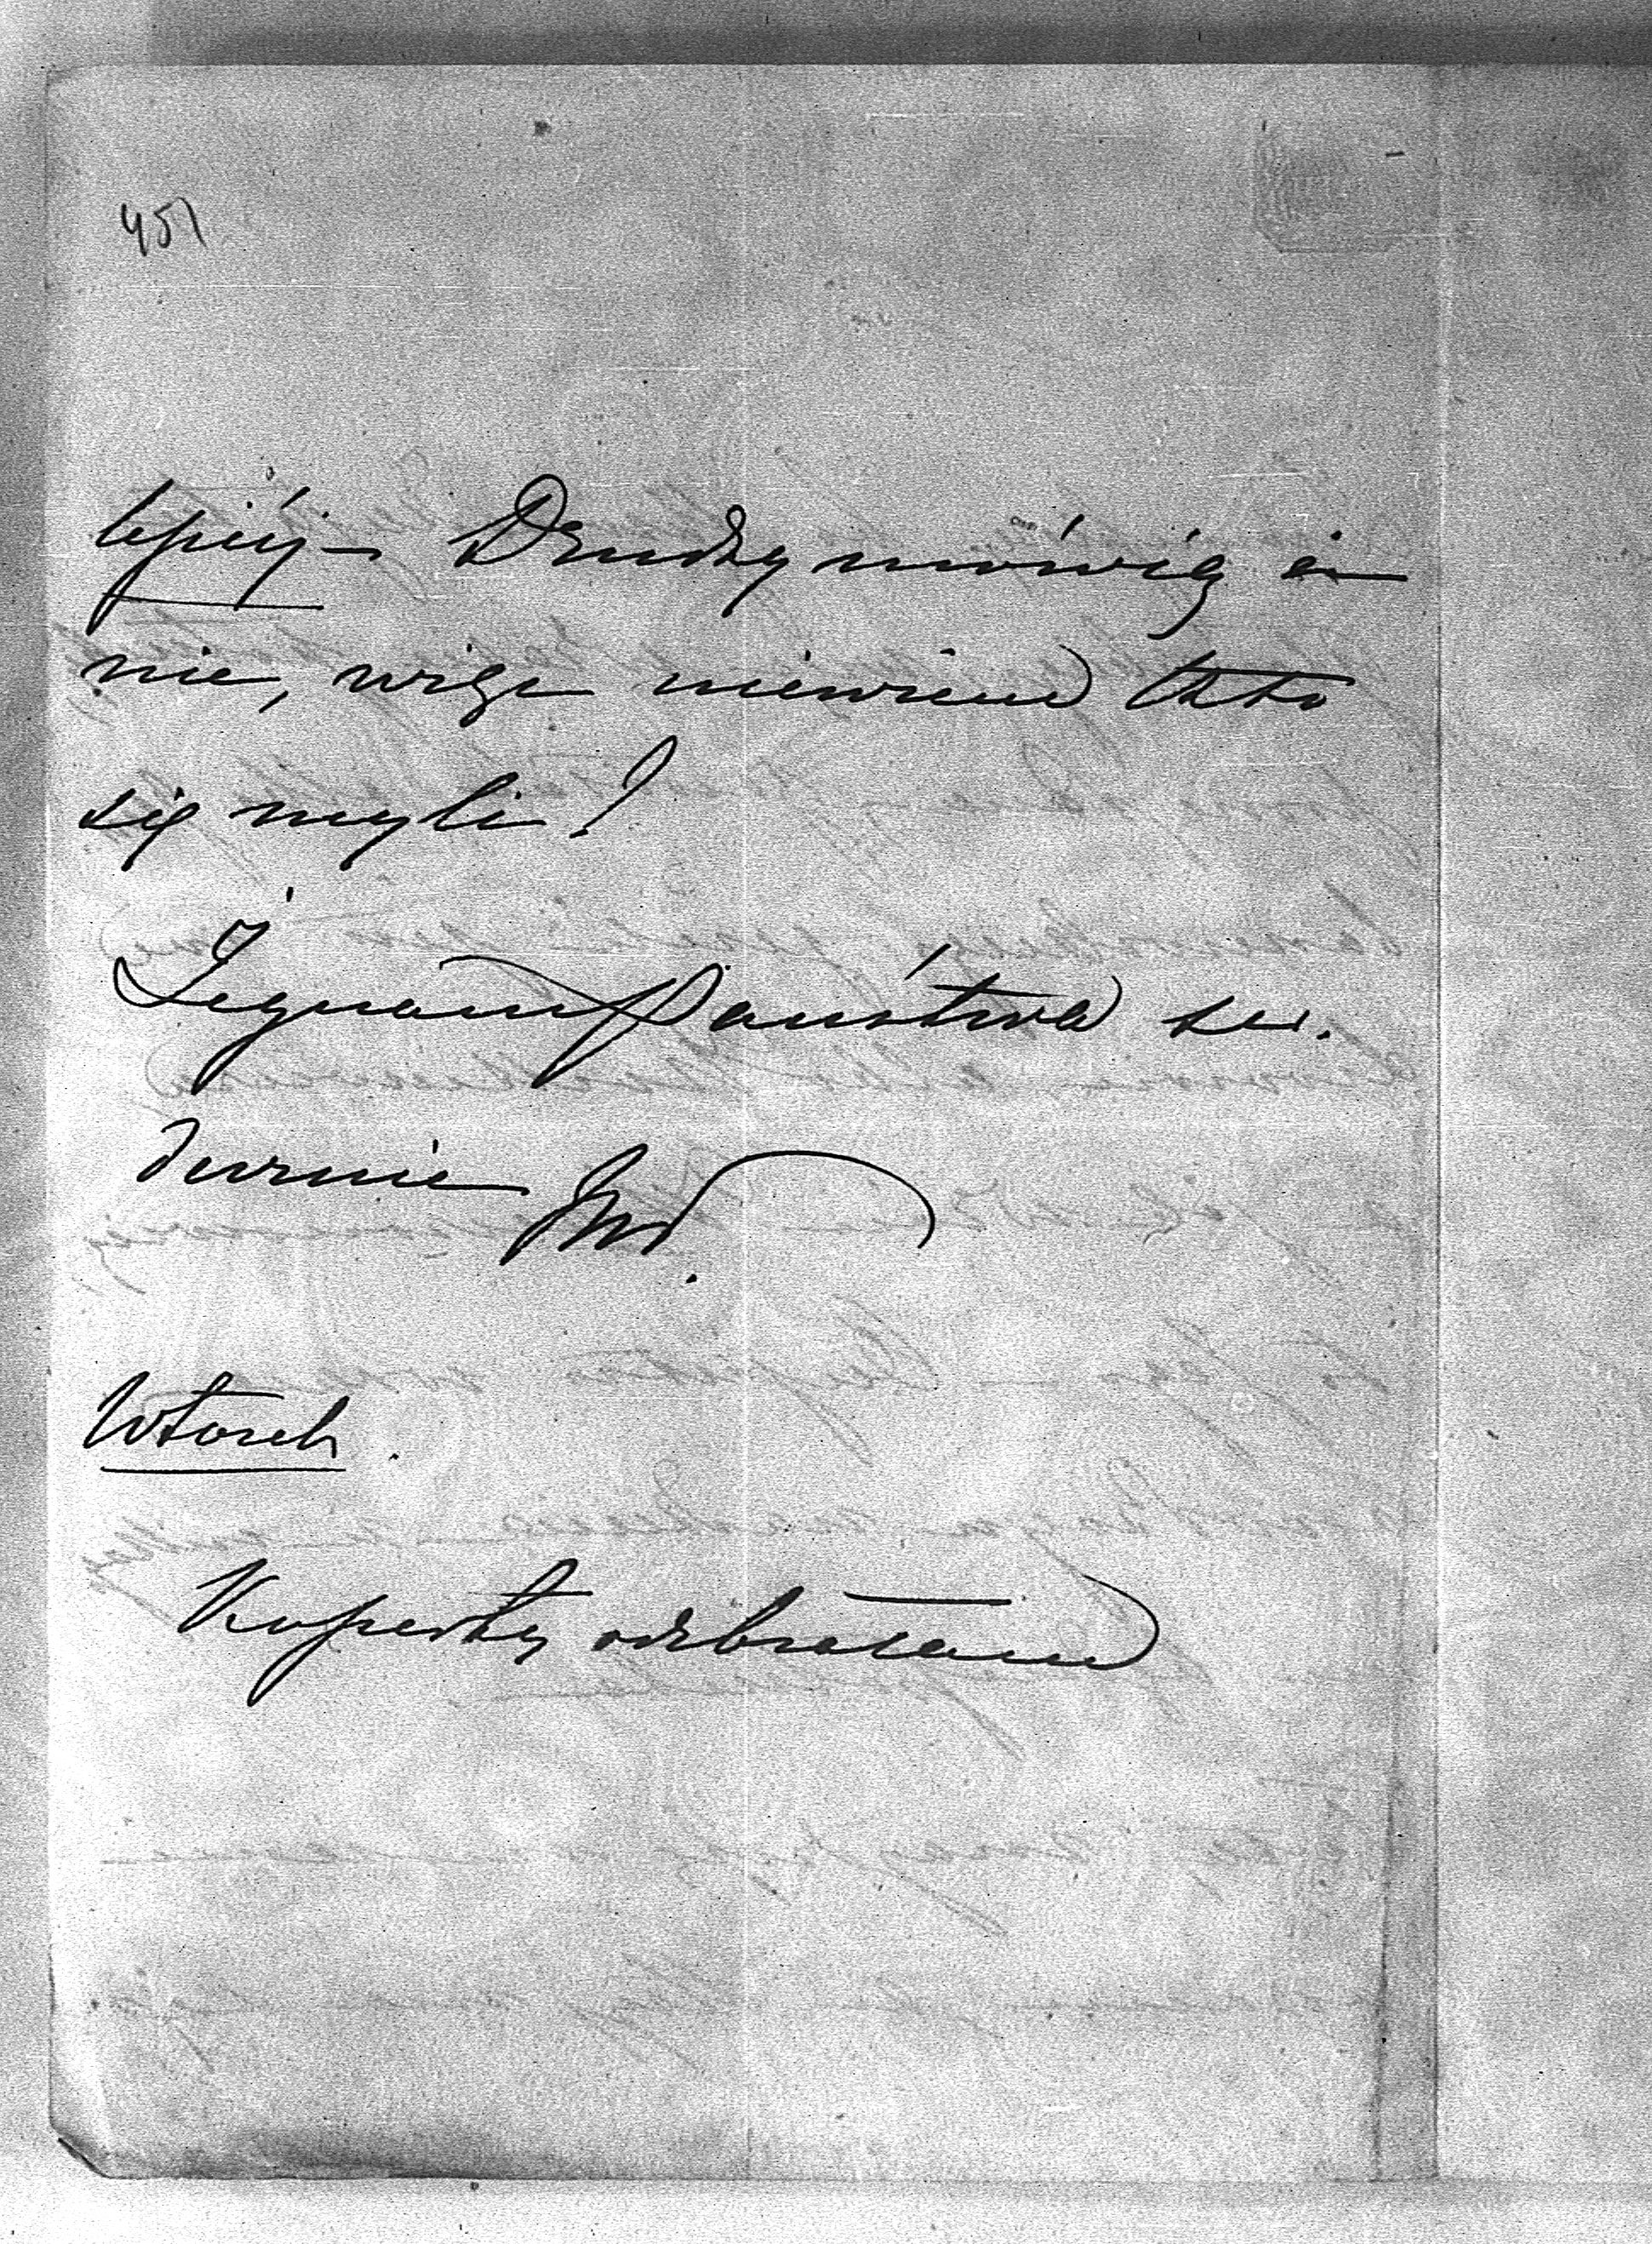 451
lepiéj – Drudzy mówią że
nie, więc niewiem kto
się myli!
Żegnam Państwa ser.
decznie
Wtorek.
Koperty odebrałam